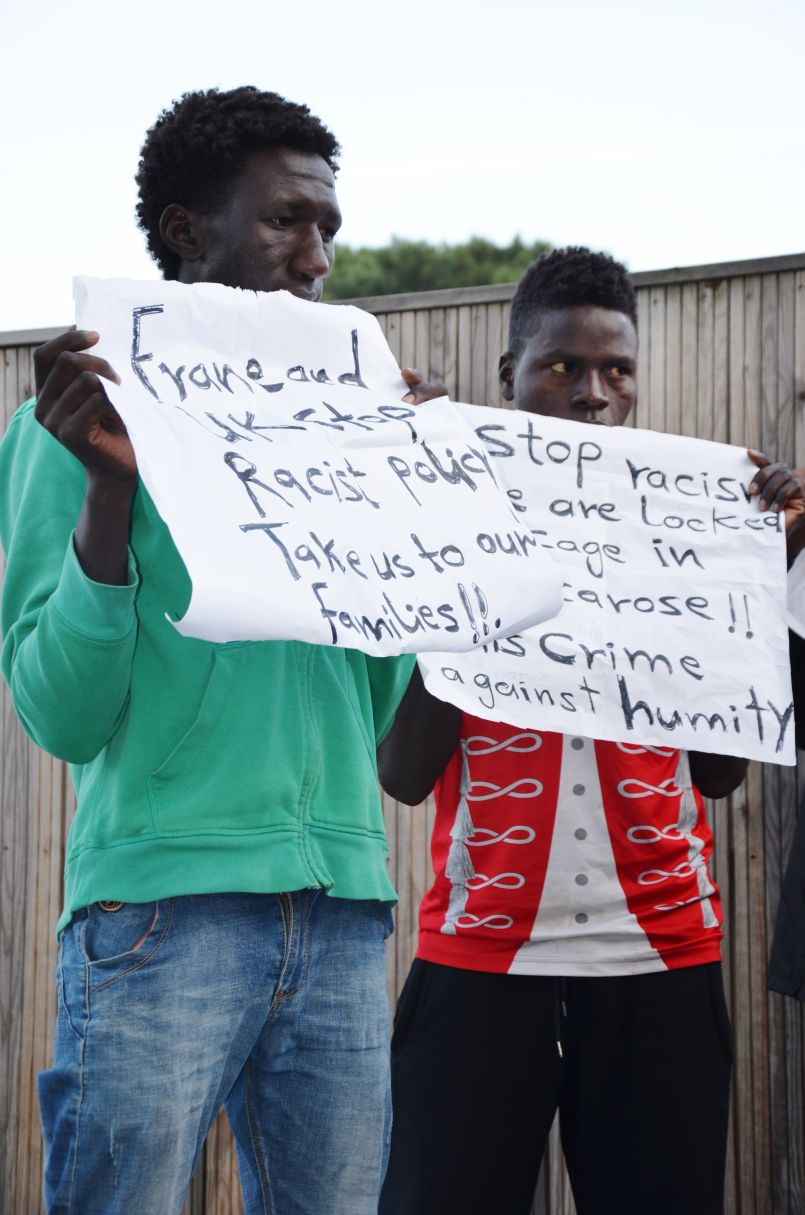 Frane and
UK stop
Racist policy
Take us to our
families!!.
Stop racism
e are Locked
cage in
carose !!
is Crime
against humity